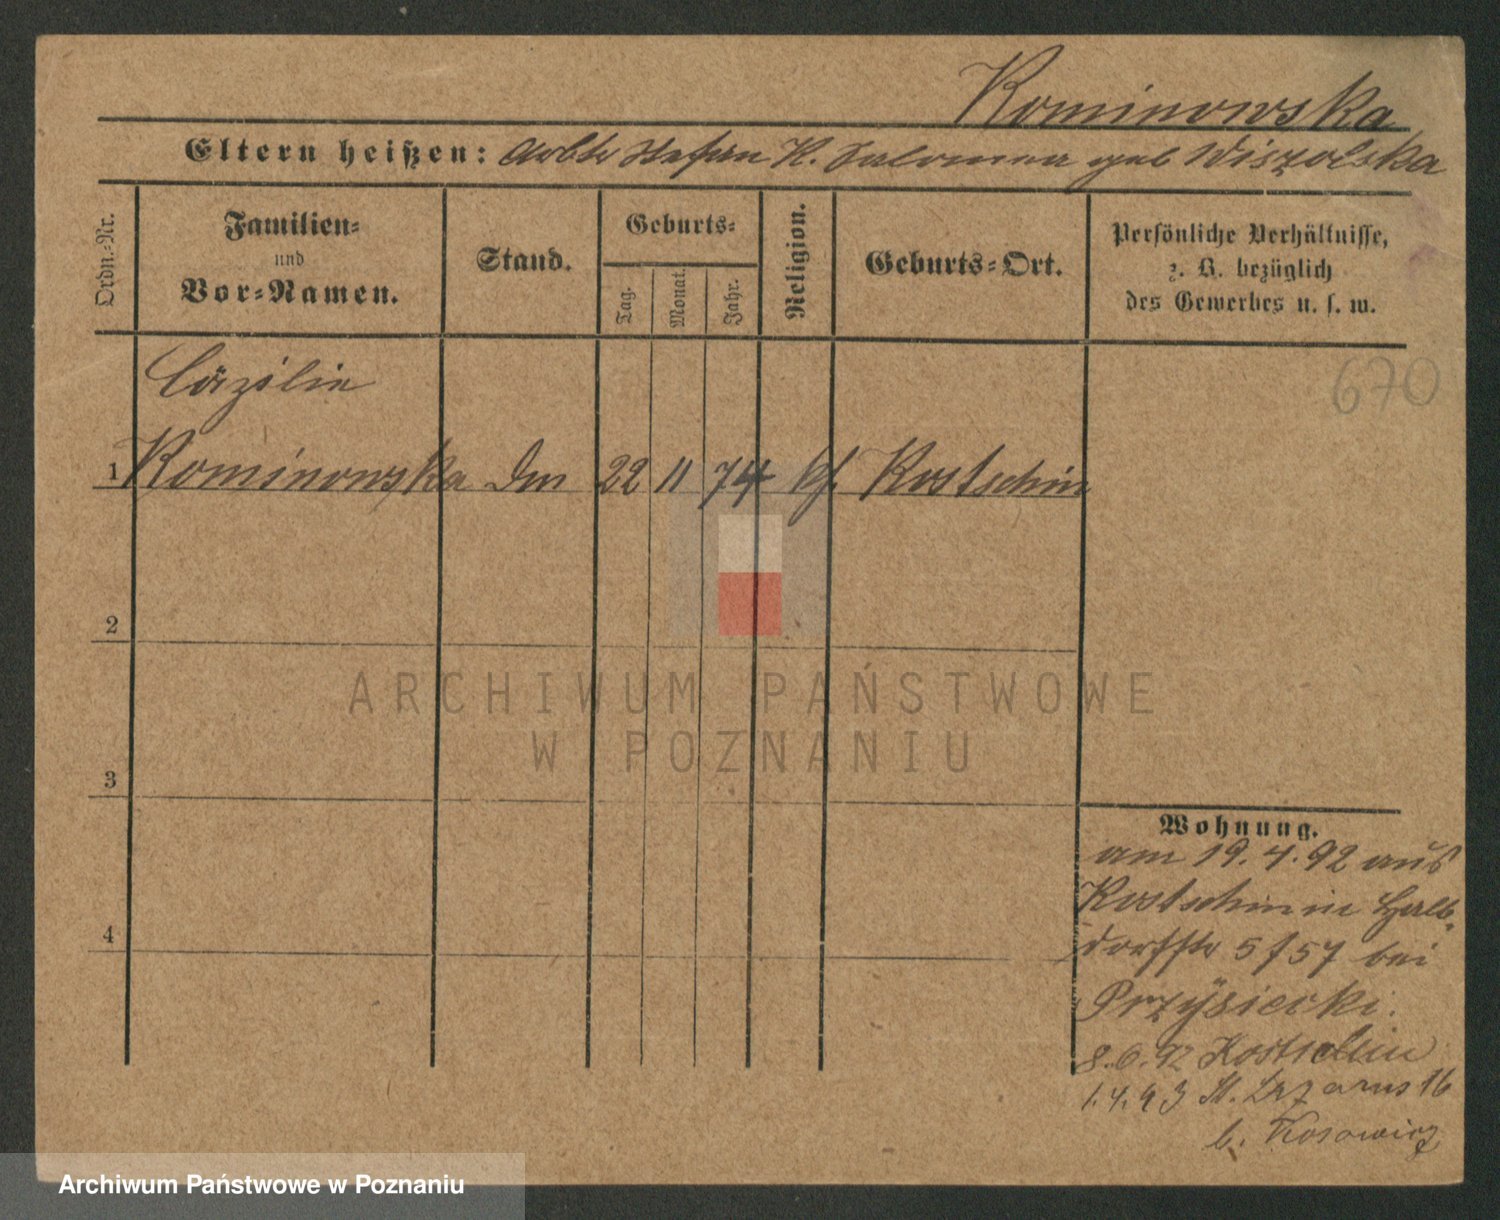 Kominowska
Eltern heißen: Arbtr Stefan K. Salomea geb Wiszolska
Ordn.-Nr.
Familien-
und
Vor-Namen.
Stand.
Geburts-
Tag.
Monat.
Jahr.
Religion.
Geburts-Ort.
Persönliche Verhältnisse,
z. B. bezüglich
des Gewerbes u. s. w.
670
Cäzilie
1 Kominowska Dm 22 11 74 kf Kostschin
2
3
4
Wohnung.
am 19.4.92 aus
Kostschin in Halb-
dorfstr 5 f 57 bei
Przysiecki.
8.6.92 Kostschin
1.4.93 St. Lazarus 16
b. Kosowicz
ARCHIWUM PAŃSTWOWE
W POZNANIU
Archiwum Państwowe w Poznaniu